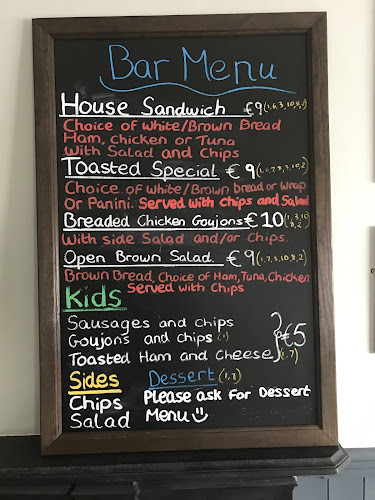 Bar Menu
House Sandwich €9 (1,6,3,10,8,2)
Choice of White/Brown Bread
Ham, chicken or Tuna
With Salad and Chips
Toasted Special €9
Choice of White/Brown bread or Wrap
Or Panini. Served with Chips and Salad
Breaded Chicken Goujons €10 (1,3,10
8,2)
With side Salad and/or Chips.
Open Brown Salad €9 (1,7,3,10,8,2)
Brown Bread, Choice of Ham, Tuna, Chicken
Served with Chips
Kids
Sausages and chips
Goujons and chips (1)
Toasted Ham and cheese
€5
(1,7)
Sides
Dessert
Chips
Please ask For Dessert
Salad
Menu